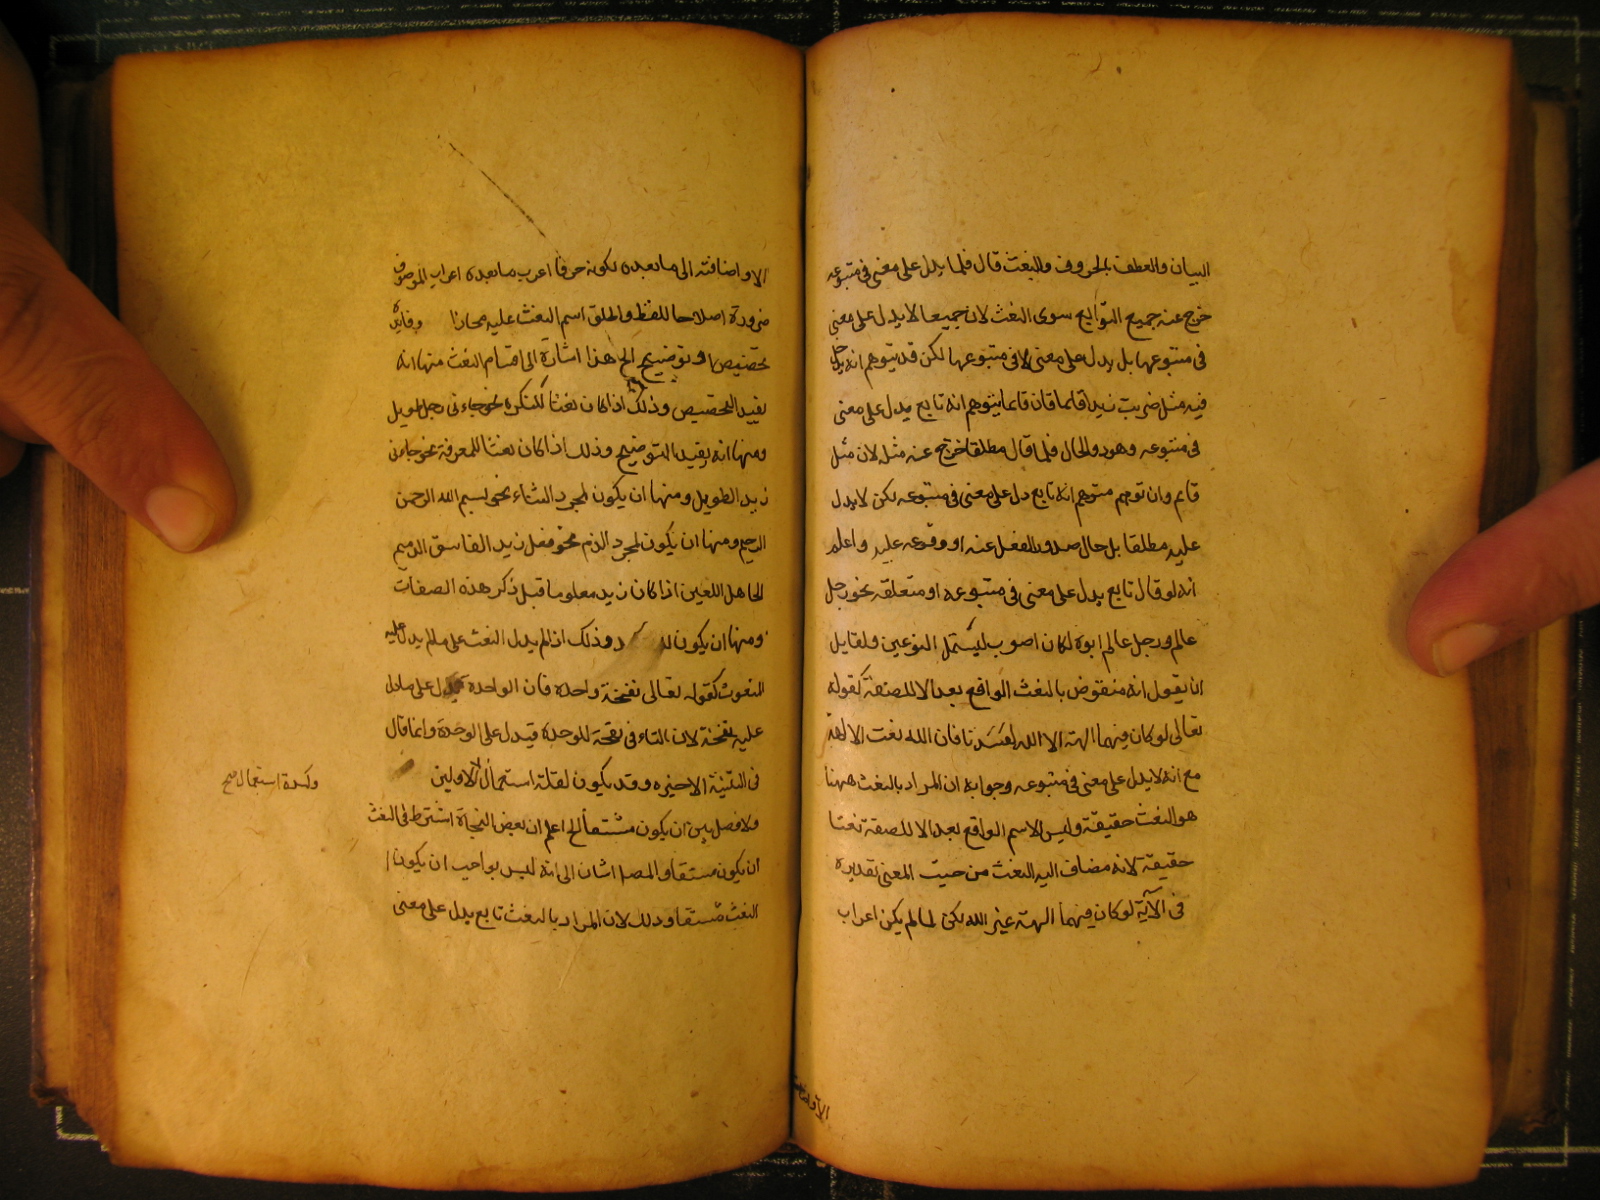 البيان والعطف بالحروف والنعت قال فلما يدل على معنى في متبوعه
خرج عنه جميع التوابع سوى النعت لان جميعا لا يدل على معنى
في متبوعها بل يدل على معنى لا في متبوعها لكن قد يتوهم انه يدخل
فيه مثل ضربت زيدا قائما فان قائما يتوهم انه تابع يدل على معنى
في متبوعه وهو ذو الحال فلما قال مطلقا خرج عنه مثله لان مثل
قايم وان توهم متوهم انه تابع دل على معنى في متبوعه لكن لا يدل
عليه مطلقا بل حال صدور الفعل عنه او وقوعه عليه واعلم
انه لو قال تابع يدل على معنى في متبوعه او متعلقه نحو رجل
عالم ورجل عالم ابوه لكان اصوب ليشمل النوعين ولقايل
ان يقول انه منقوض بالنعت الواقع بعد الا للصفة كقوله
تعالى لو كان فيهما الهة الا الله لفسدتا فان الله نعت الالهة
مع انه لا يدل على معنى في متبوعه وجوابه ان المراد بالنعت ههنا
هو النعت حقيقة وليس الاسم الواقع بعد الا للصفة نعتا
حقيقة لانه مضاف اليه النعت من حيث المعنى تقديره
في الآية لو كان فيهما الهة غير الله لكن لما لم يكن اعراب
الا واضافته الى ما بعده لكونه حرفا اعرب ما بعده اعراب الموصوف
ضرورة اصلاحا للفظ واطلق اسم النعت عليه مجازا وفايدته
تخصيص او توضيح الخ هذا اشارة الى اقسام النعت منها انه
يفيد التخصيص وذلك اذا كان نعتا لنكرة نحو جاءني رجل طويل
ومنها انه يفيد التوضيح وذلك اذا كان نعتا للمعرفة نحو جاءني
زيد الطويل ومنها ان يكون لمجرد الثناء نحو بسم الله الرحمن
الرحيم ومنها ان يكون لمجرد الذم نحو فعل زيد الفاسق الذميم
الجاهل اللعين اذا كان زيد معلوما قبل ذكر هذه الصفات
ومنها ان يكون وذلك اذا لم يدل النعت على ما لم يدل عليه
المنعوت كقوله تعالى نفخة واحدة فان الواحدة يدل على ما دل
عليه نفخة لان التاء في نفخة للوحدة فيدل على الوحدة وانما قال
في الاخيرة وقد يكون لقلة استعمال الاولين
وكثرة استعمال صح
ولا فصل بين ان يكون مشتقا الخ اعلم ان بعض النحاة اشترط في النعت
ان يكون مشتقا والمص اشار الى انه ليس بواجب ان يكون
النعت مشتقا وذلك لان المراد بالنعت تابع يدل على معنى